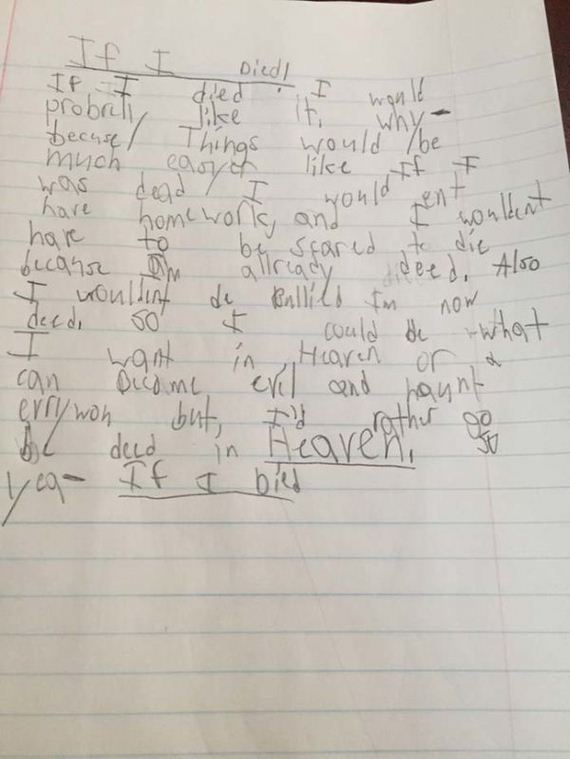 If I Died!
If I died I would
probrily like it, why-
becuse/ Things would be
much easyer like If I
was dead/ I would ent
have homework, and I wouldent
hare to be scared to die
because Im allready deed. Also
I wouldint be Bullied Im now
deed. so I could be what
I want in Heaven or
can become evil and haunt
erry won but, I'd rather go
be deed in Heaven. so
yea- If I Died